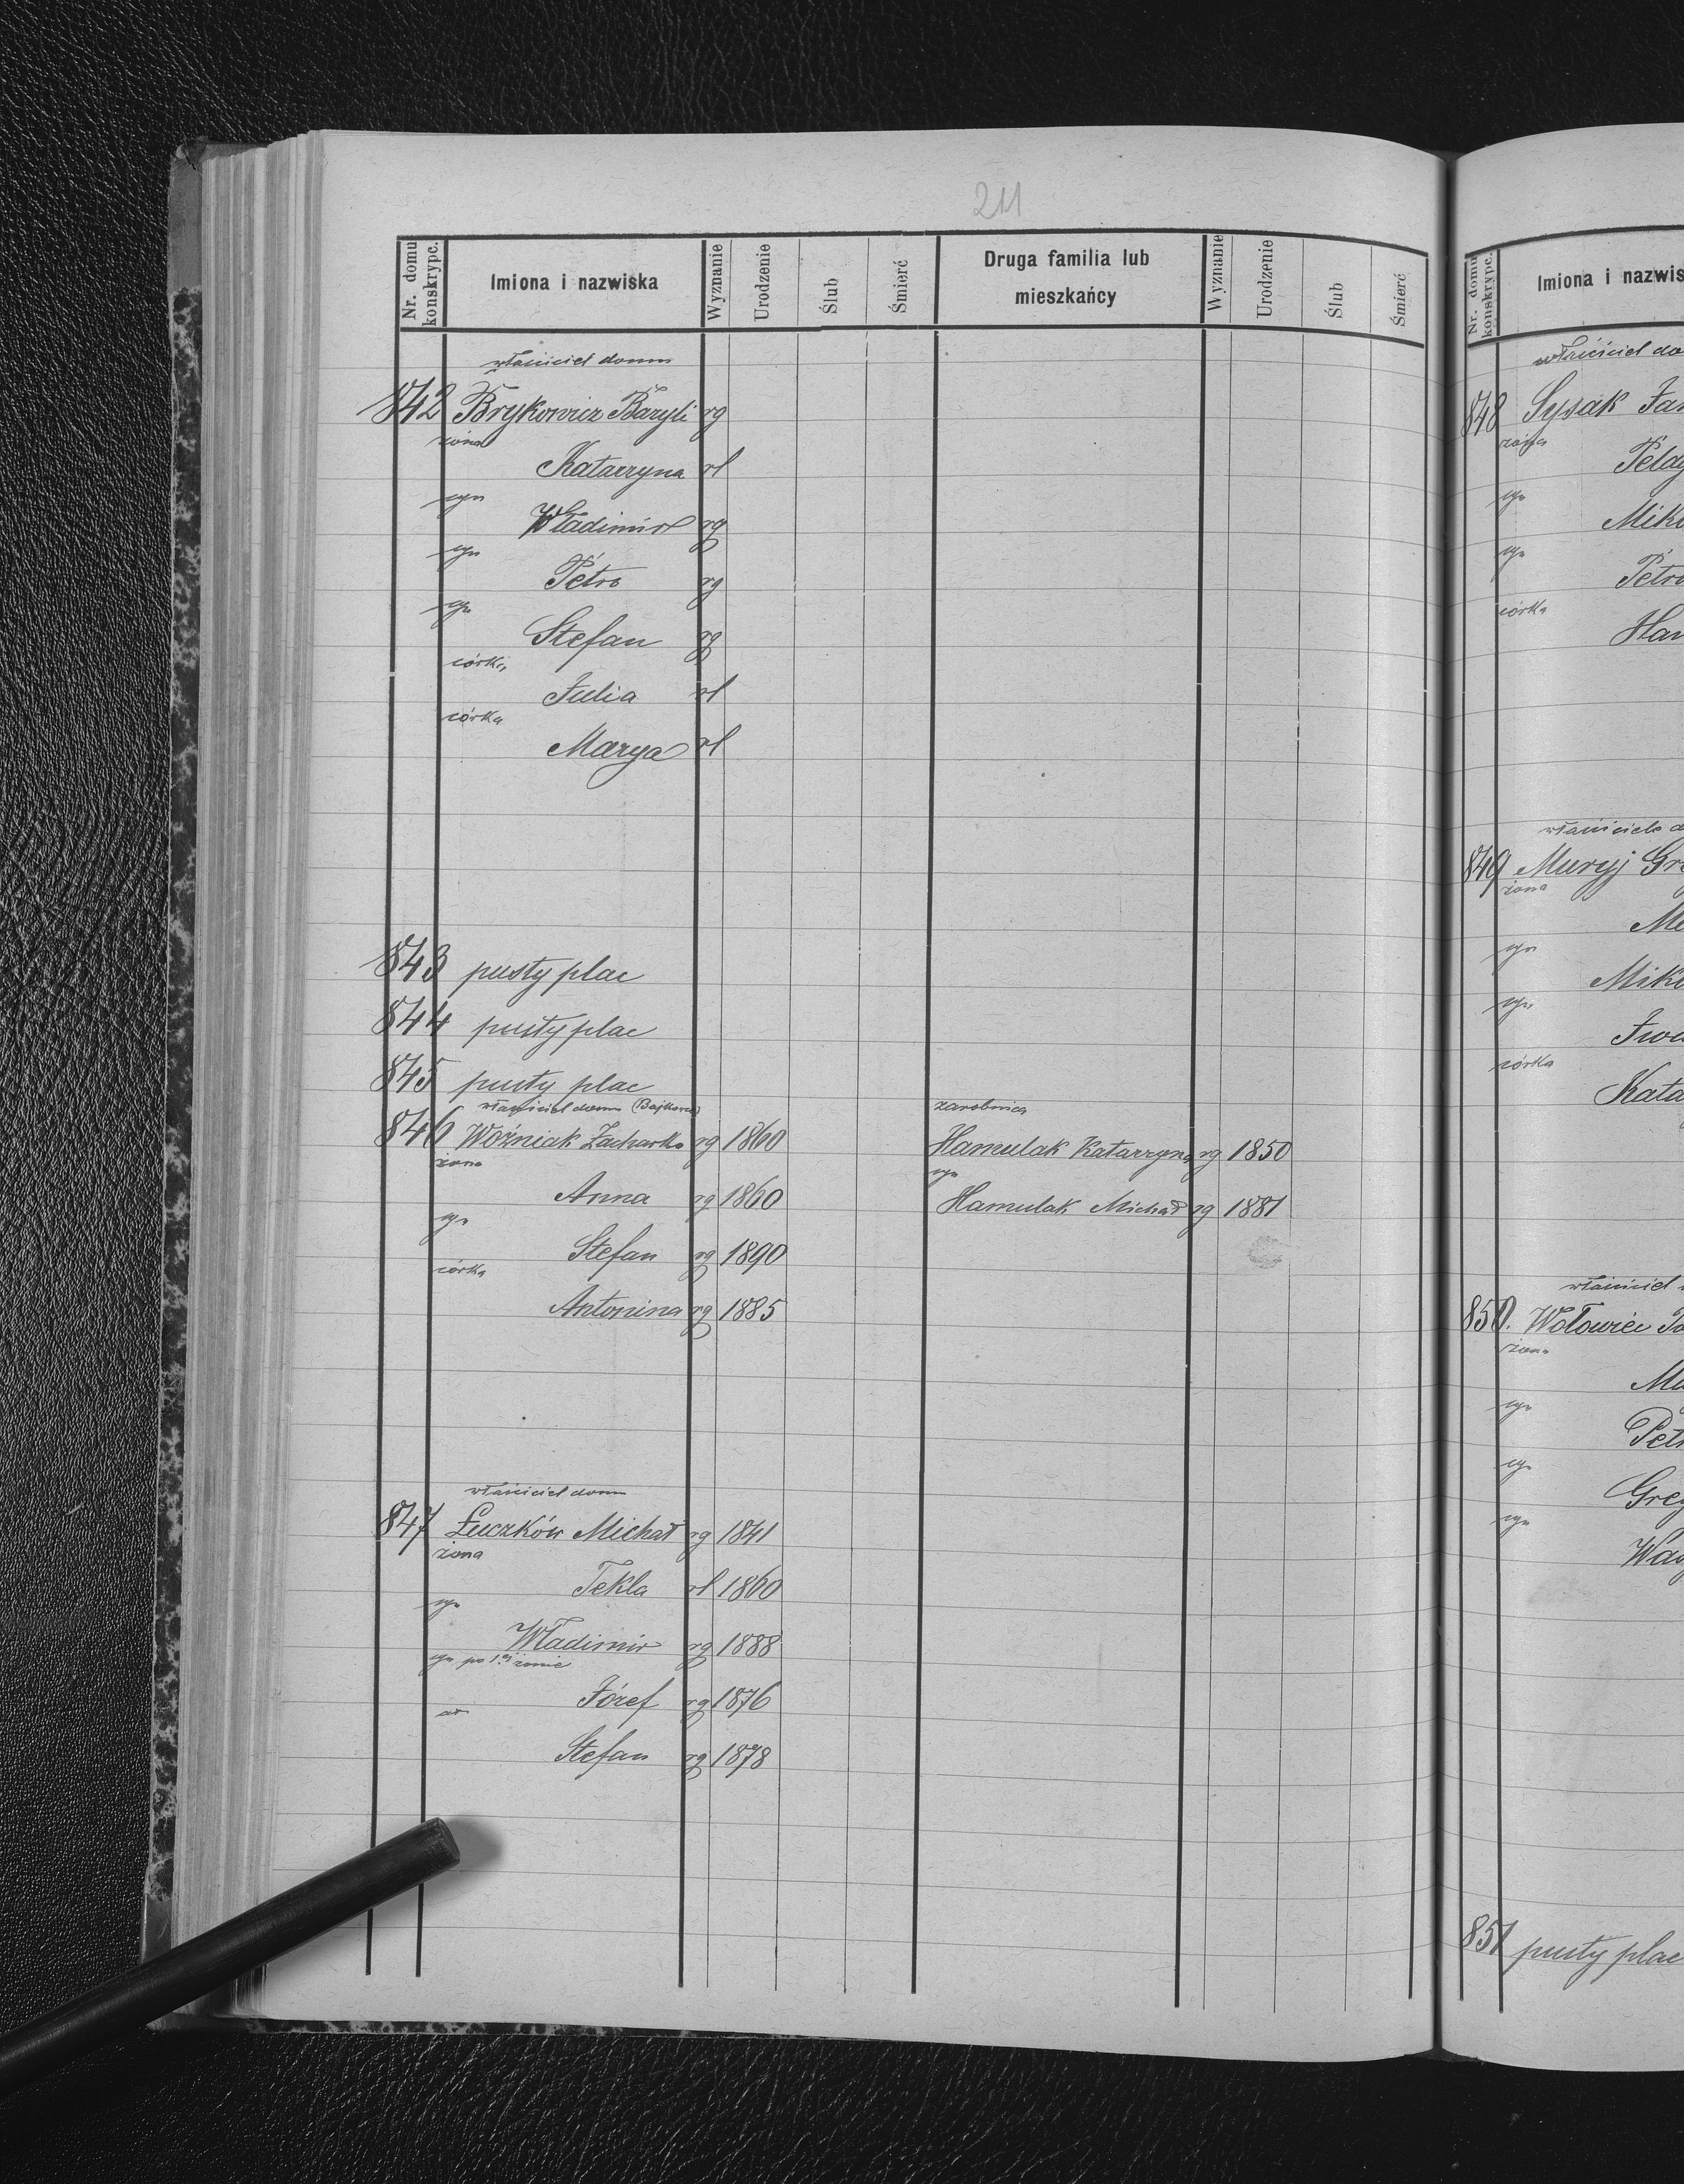 211
Nr. domu konskrypc. Imiona i nazwiska Wyznanie Urodzenie Ślub Śmierć Druga familia lub mieszkańcy Wyznanie Urodzenie Ślub Śmierć
właściciel domu
842 Brykowicz Bazyli rg
żona
Katarzyna rl
syn
Władimir rg
syn
Petro rg
syn
Stefan rg
córka
Julia rl
córka
Marya rl
843 pusty plac
844 pusty plac
845 pusty plac
właściciel domu (Bajkowa) zarobnica
846 Woźniak Zacharko rg 1860 Hamulak Katarzyna rg 1850
żona syn
Anna rg 1860 Hamulak Michał rg 1881
syn
Stefan rg 1890
córka
Antonina rg 1885
właściciel domu
847 Łuczków Michał rg 1841
żona
Tekla rl 1860
syn
Władimir rg 1888
syn po 1ej żonie
Józef rg 1876
Stefan rg 1878
Nr. domu konskrypc. Imiona i nazwis
właściciel do
848 Sysak Jan
żona
syn
Miko
syn
Petro
córka
Han
właściciel d
849 Muryj Gre
żona
syn
Miko
syn
Iwa
córka
Kata
właściciel
850. Wołowiec
żona
Ma
syn
Petr
syn
Greg
syn
851 pusty plac